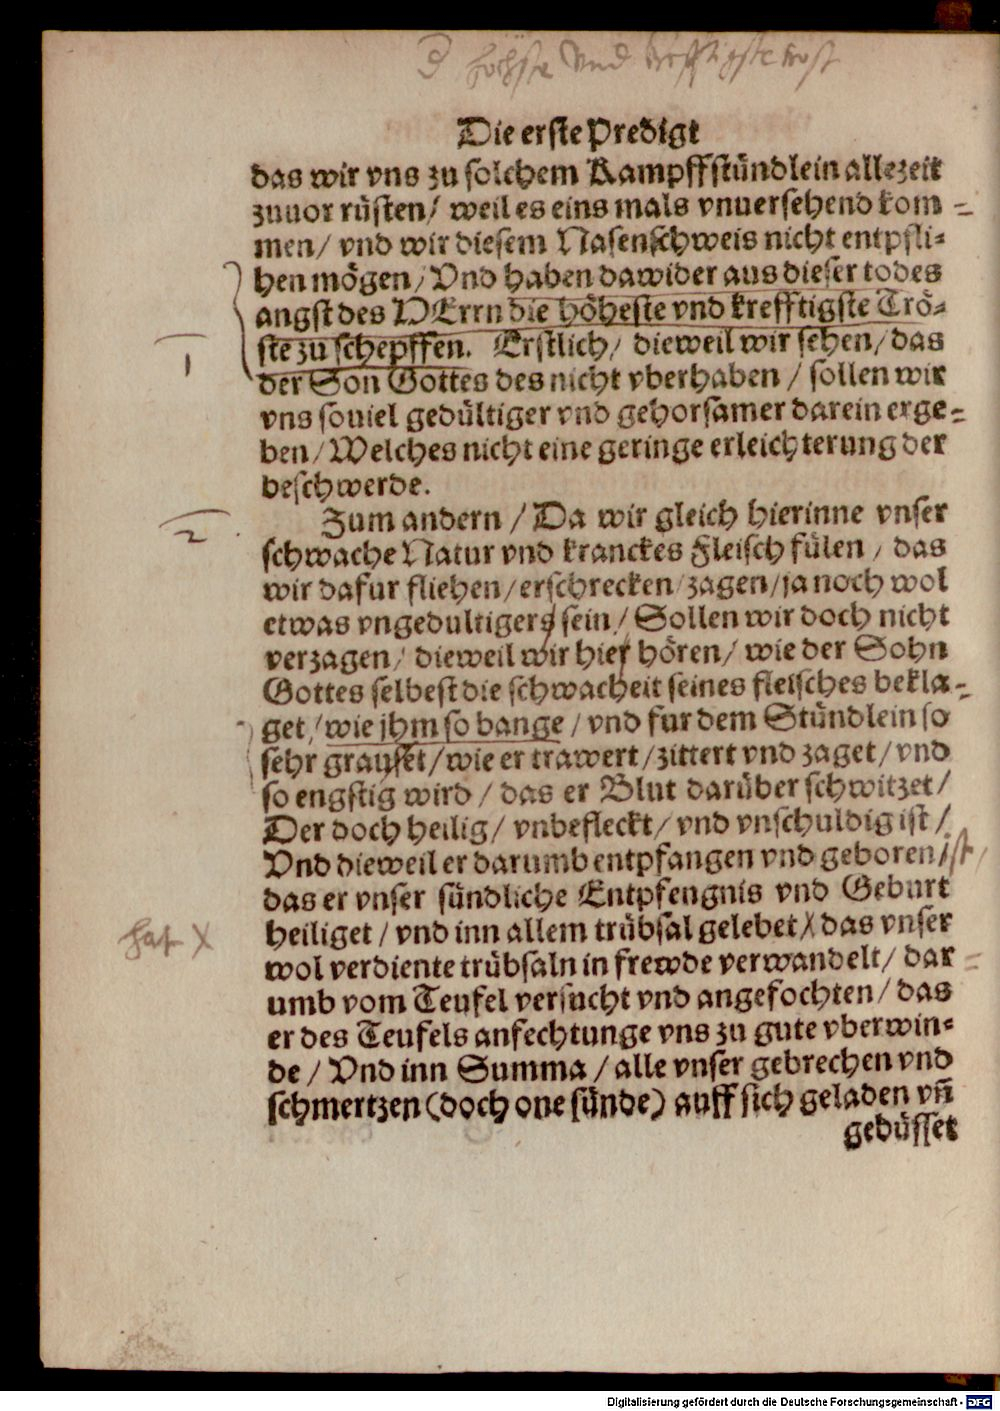 3 höchste vnd krefftigste trost
Die erste Predigt
das wir vns zu solchem Kampffstündlein allezeit
zuuor rüsten/ weil es eins mals vnuersehend kom-
men/ vnd wir diesem Nasenschweis nicht entpfli-
hen mögen/ Vnd haben dawider aus dieser todes
angst des HErrn die höheste vnd krefftigste Trö-
ste zu schepffen. Erstlich/ dieweil wir sehen/ das
1
der Son Gottes des nicht vberhaben / sollen wir
vns souiel gedültiger vnd gehorsamer darein erge-
ben/ Welches nicht eine geringe erleichterung der
beschwerde.
Zum andern / Da wir gleich hierinne vnser
2
schwache Natur vnd kranckes Fleisch fülen / das
wir dafur fliehen/ erschrecken/ zagen/ ja noch wol
etwas vngedultiger sein/ Sollen wir doch nicht
verzagen/ dieweil wir hier hören/ wie der Sohn
Gottes selbest die schwacheit seines fleisches bekla-
get/ wie jhm so bange / vnd fur dem Stündlein so
sehr grauset/ wie er trawert/ zittert vnd zaget/ vnd
so engstig wird / das er Blut darüber schwitzet/
Der doch heilig/ vnbefleckt/ vnd vnschuldig ist/
Vnd dieweil er darumb entpfangen vnd geboren/ ist,
das er vnser sündliche Entpfengnis vnd Geburt
heiliget / vnd inn allem trübsal gelebet/ das vnser
hat X
wol verdiente trübsaln in frewde verwandelt/ dar-
umb vom Teufel versucht vnd angefochten/ das
er des Teufels anfechtunge vns zu gute vberwin-
de / Vnd inn Summa / alle vnser gebrechen vnd
schmertzen (doch one sünde) auff sich geladen vñ
gebüsset
Digitalisierung gefördert durch die Deutsche Forschungsgemeinschaft - DFG